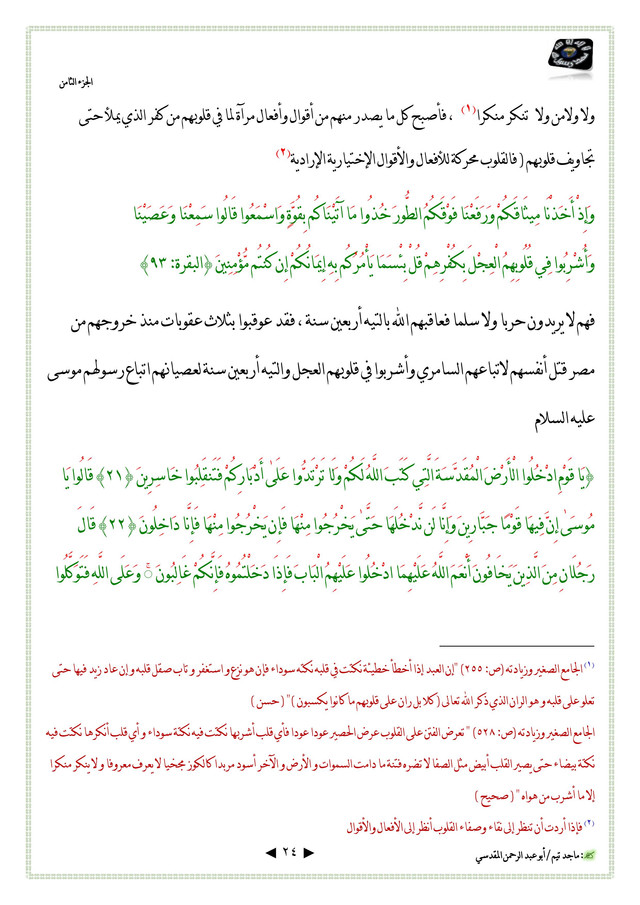 الجزء الثامن
ولا ولامن ولا تنكر منكرا(١) ، فأصبح كل ما يصدر منهم من أقوال وأفعال مرآة لما في قلوبهم من كفر الذي يملأ حتى
تجاويف قلوبهم ( فالقلوب محركة للأفعال والأقوال الإختيارية الإرادية(٢)
وَإِذْ أَخَذْنَا مِيثَاقَكُمْ وَرَفَعْنَا فَوْقَكُمُ الطُّورَ خُذُوا مَا آتَيْنَاكُم بِقُوَّةٍ وَاسْمَعُوا قَالُوا سَمِعْنَا وَعَصَيْنَا
وَأُشْرِبُوا فِي قُلُوبِهِمُ الْعِجْلَ بِكُفْرِهِمْ قُلْ بِئْسَمَا يَأْمُرُكُم بِهِ إِيمَانُكُمْ إِن كُنتُم مُّؤْمِنِينَ ﴿البقرة: ٩٣﴾
فهم لا يريدون حربا ولا سلما فعاقبهم الله بالتيه أربعين سنة ، فقد عوقبوا بثلاث عقوبات منذ خروجهم من
مصر قتل أنفسهم لاتباعهم السامري وأشربوا في قلوبهم العجل والتيه أربعين سنة لعصيانهم اتباع رسولهم موسى
عليه السلام
﴿يَا قَوْمِ ادْخُلُوا الْأَرْضَ الْمُقَدَّسَةَ الَّتِي كَتَبَ اللَّهُ لَكُمْ وَلَا تَرْتَدُّوا عَلَىٰ أَدْبَارِكُمْ فَتَنقَلِبُوا خَاسِرِينَ ﴿٢١﴾ قَالُوا يَا
مُوسَىٰ إِنَّ فِيهَا قَوْمًا جَبَّارِينَ وَإِنَّا لَن نَّدْخُلَهَا حَتَّىٰ يَخْرُجُوا مِنْهَا فَإِن يَخْرُجُوا مِنْهَا فَإِنَّا دَاخِلُونَ ﴿٢٢﴾ قَالَ
رَجُلَانِ مِنَ الَّذِينَ يَخَافُونَ أَنْعَمَ اللَّهُ عَلَيْهِمَا ادْخُلُوا عَلَيْهِمُ الْبَابَ فَإِذَا دَخَلْتُمُوهُ فَإِنَّكُمْ غَالِبُونَ ۚ وَعَلَى اللَّهِ فَتَوَكَّلُوا
(١) الجامع الصغير وزيادته (ص: ٢٥٥) "إن العبد إذا أخطأ خطيئة نكتت في قلبه نكتة سوداء فإن هو نزع و استغفر و تاب صقل قلبه و إن عاد زيد فيها حتى
تعلو على قلبه و هو الران الذي ذكر الله تعالى (كلا بل ران على قلوبهم ما كانوا يكسبون)" ( حسن )
الجامع الصغير وزيادته (ص: ٥٢٨) " تعرض الفتن على القلوب عرض الحصير عودا عودا فأي قلب أشربها نكتت فيه نكتة سوداء و أي قلب أنكرها نكتت فيه
نكتة بيضاء حتى يصير القلب أبيض مثل الصفا لا تضره فتنة ما دامت السموات و الأرض و الآخر أسود مربدا كالكوز مجخيا لا يعرف معروفا و لا ينكر منكرا
إلا ما أشرب من هواه " ( صحيح )
(٢) فإذا أردت أن تنظر إلى نقاء وصفاء القلوب أنظر إلى الأفعال والأقوال
: ماجد تيم / أبو عبد الرحمن المقدسي
◄ ٢٤ ►